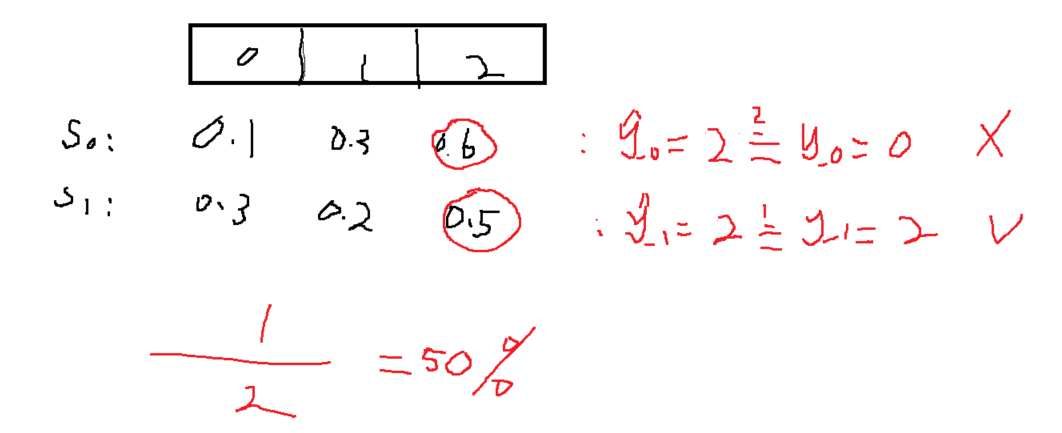 0 1 2
S0: 0.1 0.3 0.6 : ŷ_0 = 2 ≟ y_0 = 0 X
S1: 0.3 0.2 0.5 : ŷ_1 = 2 ≟ y_1 = 2 V
1
2
= 50%